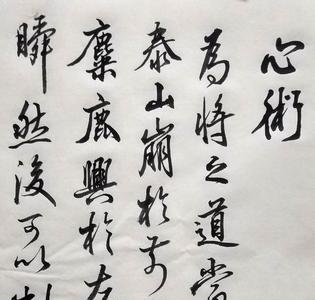 心術
為將之道當
泰山崩於前
麋鹿興於左
瞬然後可以制